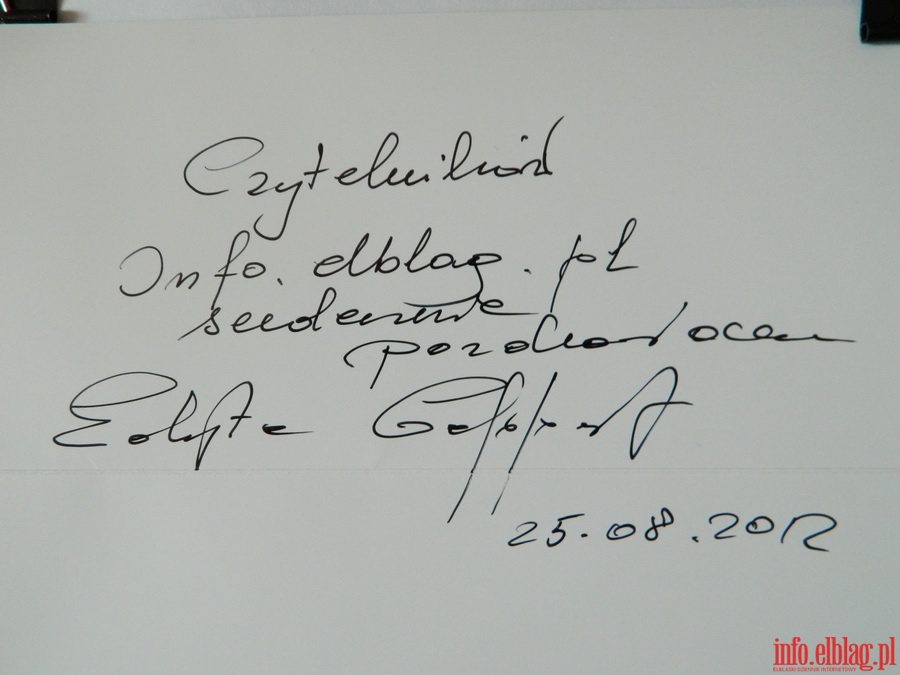 Czytelników
Info.elblag.pl
serdecznie
pozdrawiam
Edyta Geppert
25.08.2012
info.elblag.pl
ELBLĄSKI DZIENNIK INTERNETOWY